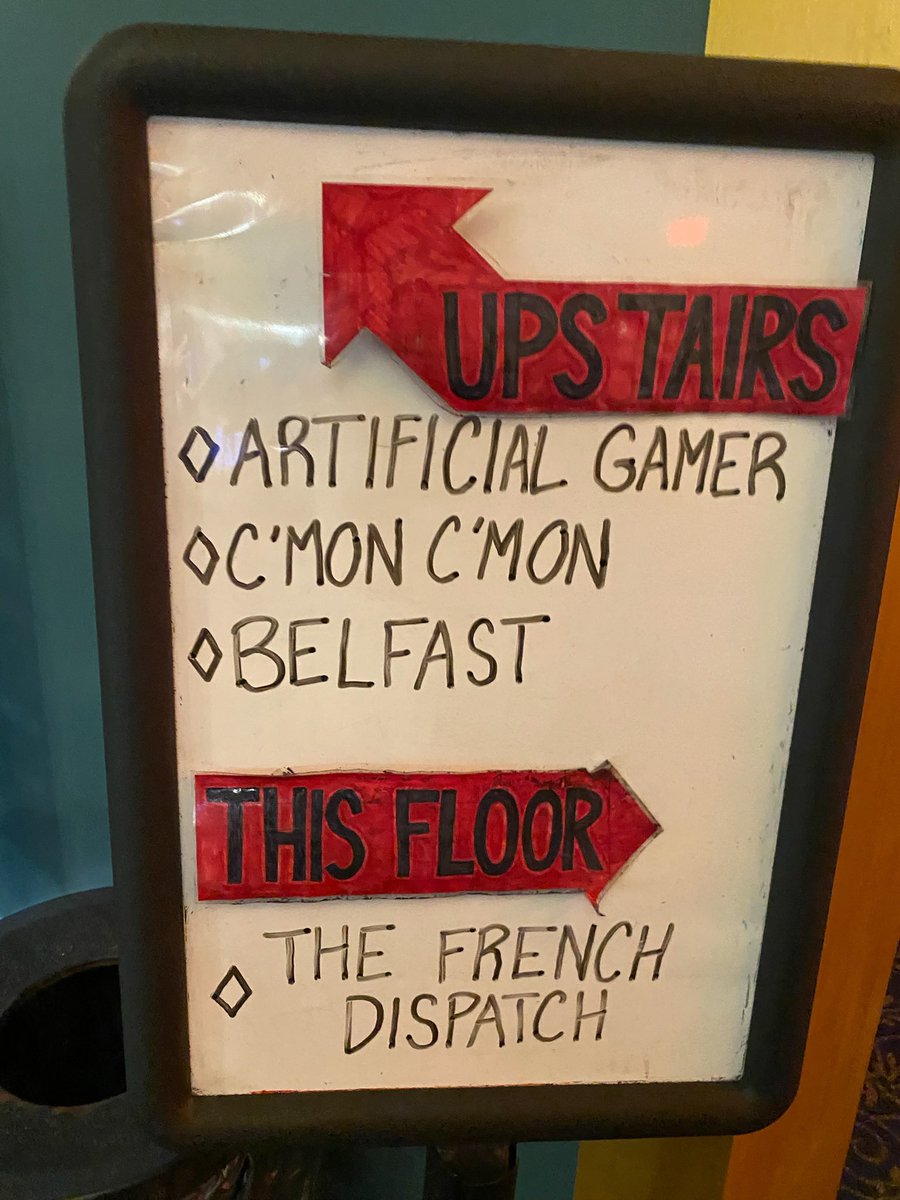 UPSTAIRS
◊ ARTIFICIAL GAMER
◊ C'MON C'MON
◊ BELFAST
THIS FLOOR
◊ THE FRENCH
DISPATCH